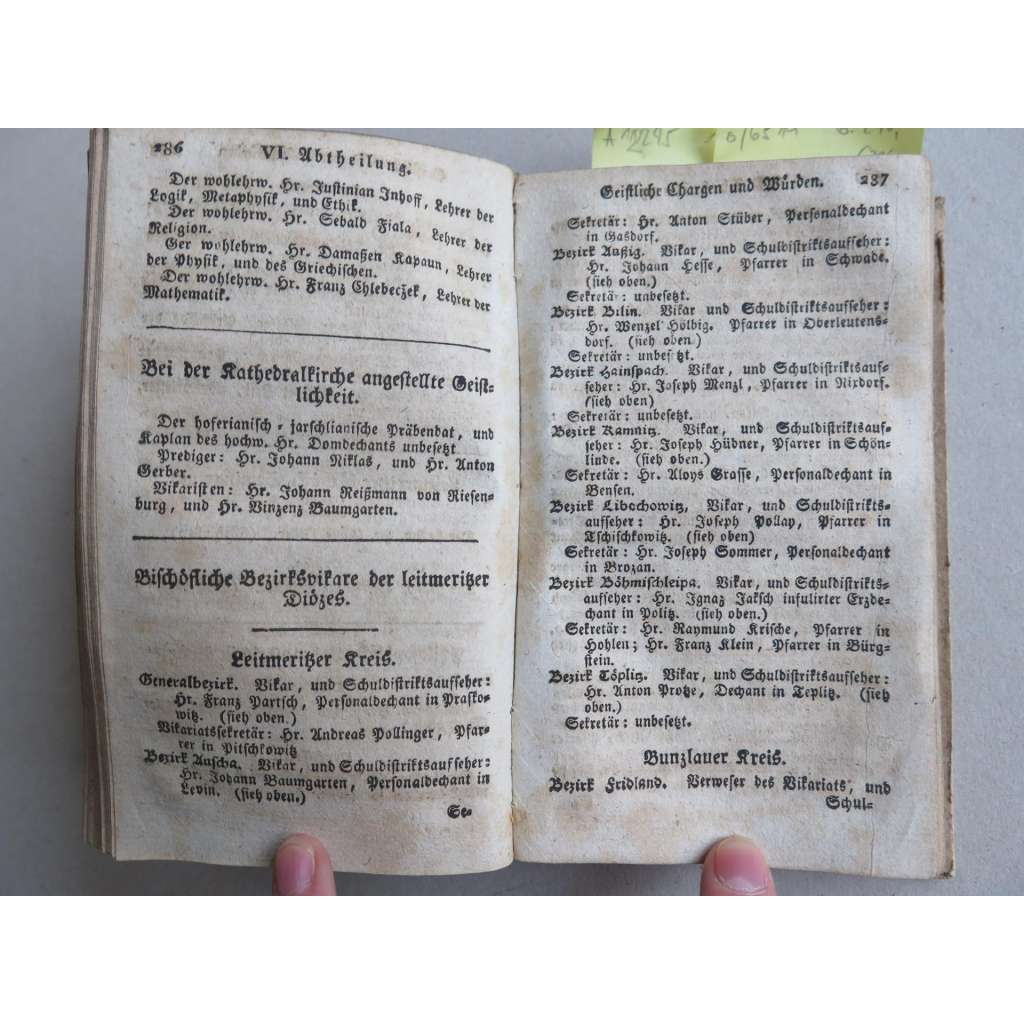 286 VI. Abtheilung.
Der wohlehrw. Hr. Justinian Inhoff, Lehrer der
Logik, Metaphysik, und Ethik.
Der wohlehrw. Hr. Sebald Fiala, Lehrer der
Religion.
Ger wohlehrw. Hr. Damaßen Kapaun, Lehrer
der Physik, und des Griechischen.
Der wohlehrw. Hr. Franz Chlebeczek, Lehrer der
Mathematik.
Bei der Kathedralkirche angestellte Geist-
lichkeit.
Der hoserianisch - jarschlianische Präbendat, und
Kaplan des hochw. Hr. Domdechants unbesetzt
Prediger: Hr. Johann Niklas, und Hr. Anton
Gerber.
Vikaristen: Hr. Johann Reißmann von Riesen-
burg, und Hr. Vinzenz Baumgarten.
Bischöfliche Bezirksvikare der leitmeritzer
Diözes.
Leitmeritzer Kreis.
Generalbezirk. Vikar, und Schuldistriktsaufseher:
Hr. Franz Partsch, Personaldechant in Prasko-
witz. (sieh oben.)
Vikariatssekretär: Hr. Andreas Pollinger, Pfar-
rer in Pitschkowitz
Bezirk Auscha. Vikar, und Schuldistriktsaufseher:
Hr. Johann Baumgarten, Personaldechant in
Levin. (sieh oben.)
Se-
Geistliche Chargen und Würden. 287
Sekretär: Hr. Anton Stüber, Personaldechant
in Gasdorf.
Bezirk Außig. Vikar, und Schuldistriktsaufseher:
Hr. Johann Hesse, Pfarrer in Schwade.
(sieh oben.)
Sekretär: unbesetzt.
Bezirk Bilin. Vikar und Schuldistriktsaufseher:
Hr. Wenzel Hölbig. Pfarrer in Oberleutens-
dorf. (sieh oben)
Sekretär: unbesetzt.
Bezirk Hainspach. Vikar, und Schuldistriktsauf-
seher: Hr. Joseph Menzl, Pfarrer in Nixdorf.
(sieh oben)
Sekretär: unbesetzt.
Bezirk Kamnitz. Vikar, und Schuldistriktsauf-
seher: Hr. Joseph Hübner, Pfarrer in Schön-
linde. (sieh oben.)
Sekretär: Hr. Aloys Grasse, Personaldechant in
Bensen.
Bezirk Libochowitz. Vikar, und Schuldistrikts-
aufseher: Hr. Joseph Pollay, Pfarrer in
Tschischkowitz. (sieh oben)
Sekretär: Hr. Joseph Sommer, Personaldechant
in Brozan.
Bezirk Böhmischleipa. Vikar, und Schuldistrikts-
aufseher: Hr. Ignaz Jaksch infulirter Erzde-
chant in Politz. (sieh oben.)
Sekretär: Hr. Raymund Krische, Pfarrer in
Hohlen; Hr. Franz Klein, Pfarrer in Bürg-
stein.
Bezirk Töplitz. Vikar, und Schuldistriktsaufseher:
Hr. Anton Protze, Dechant in Teplitz. (sieh
oben.)
Sekretär: unbesetzt.
Bunzlauer Kreis.
Bezirk Fridland. Verweser des Vikariats, und
Schul-